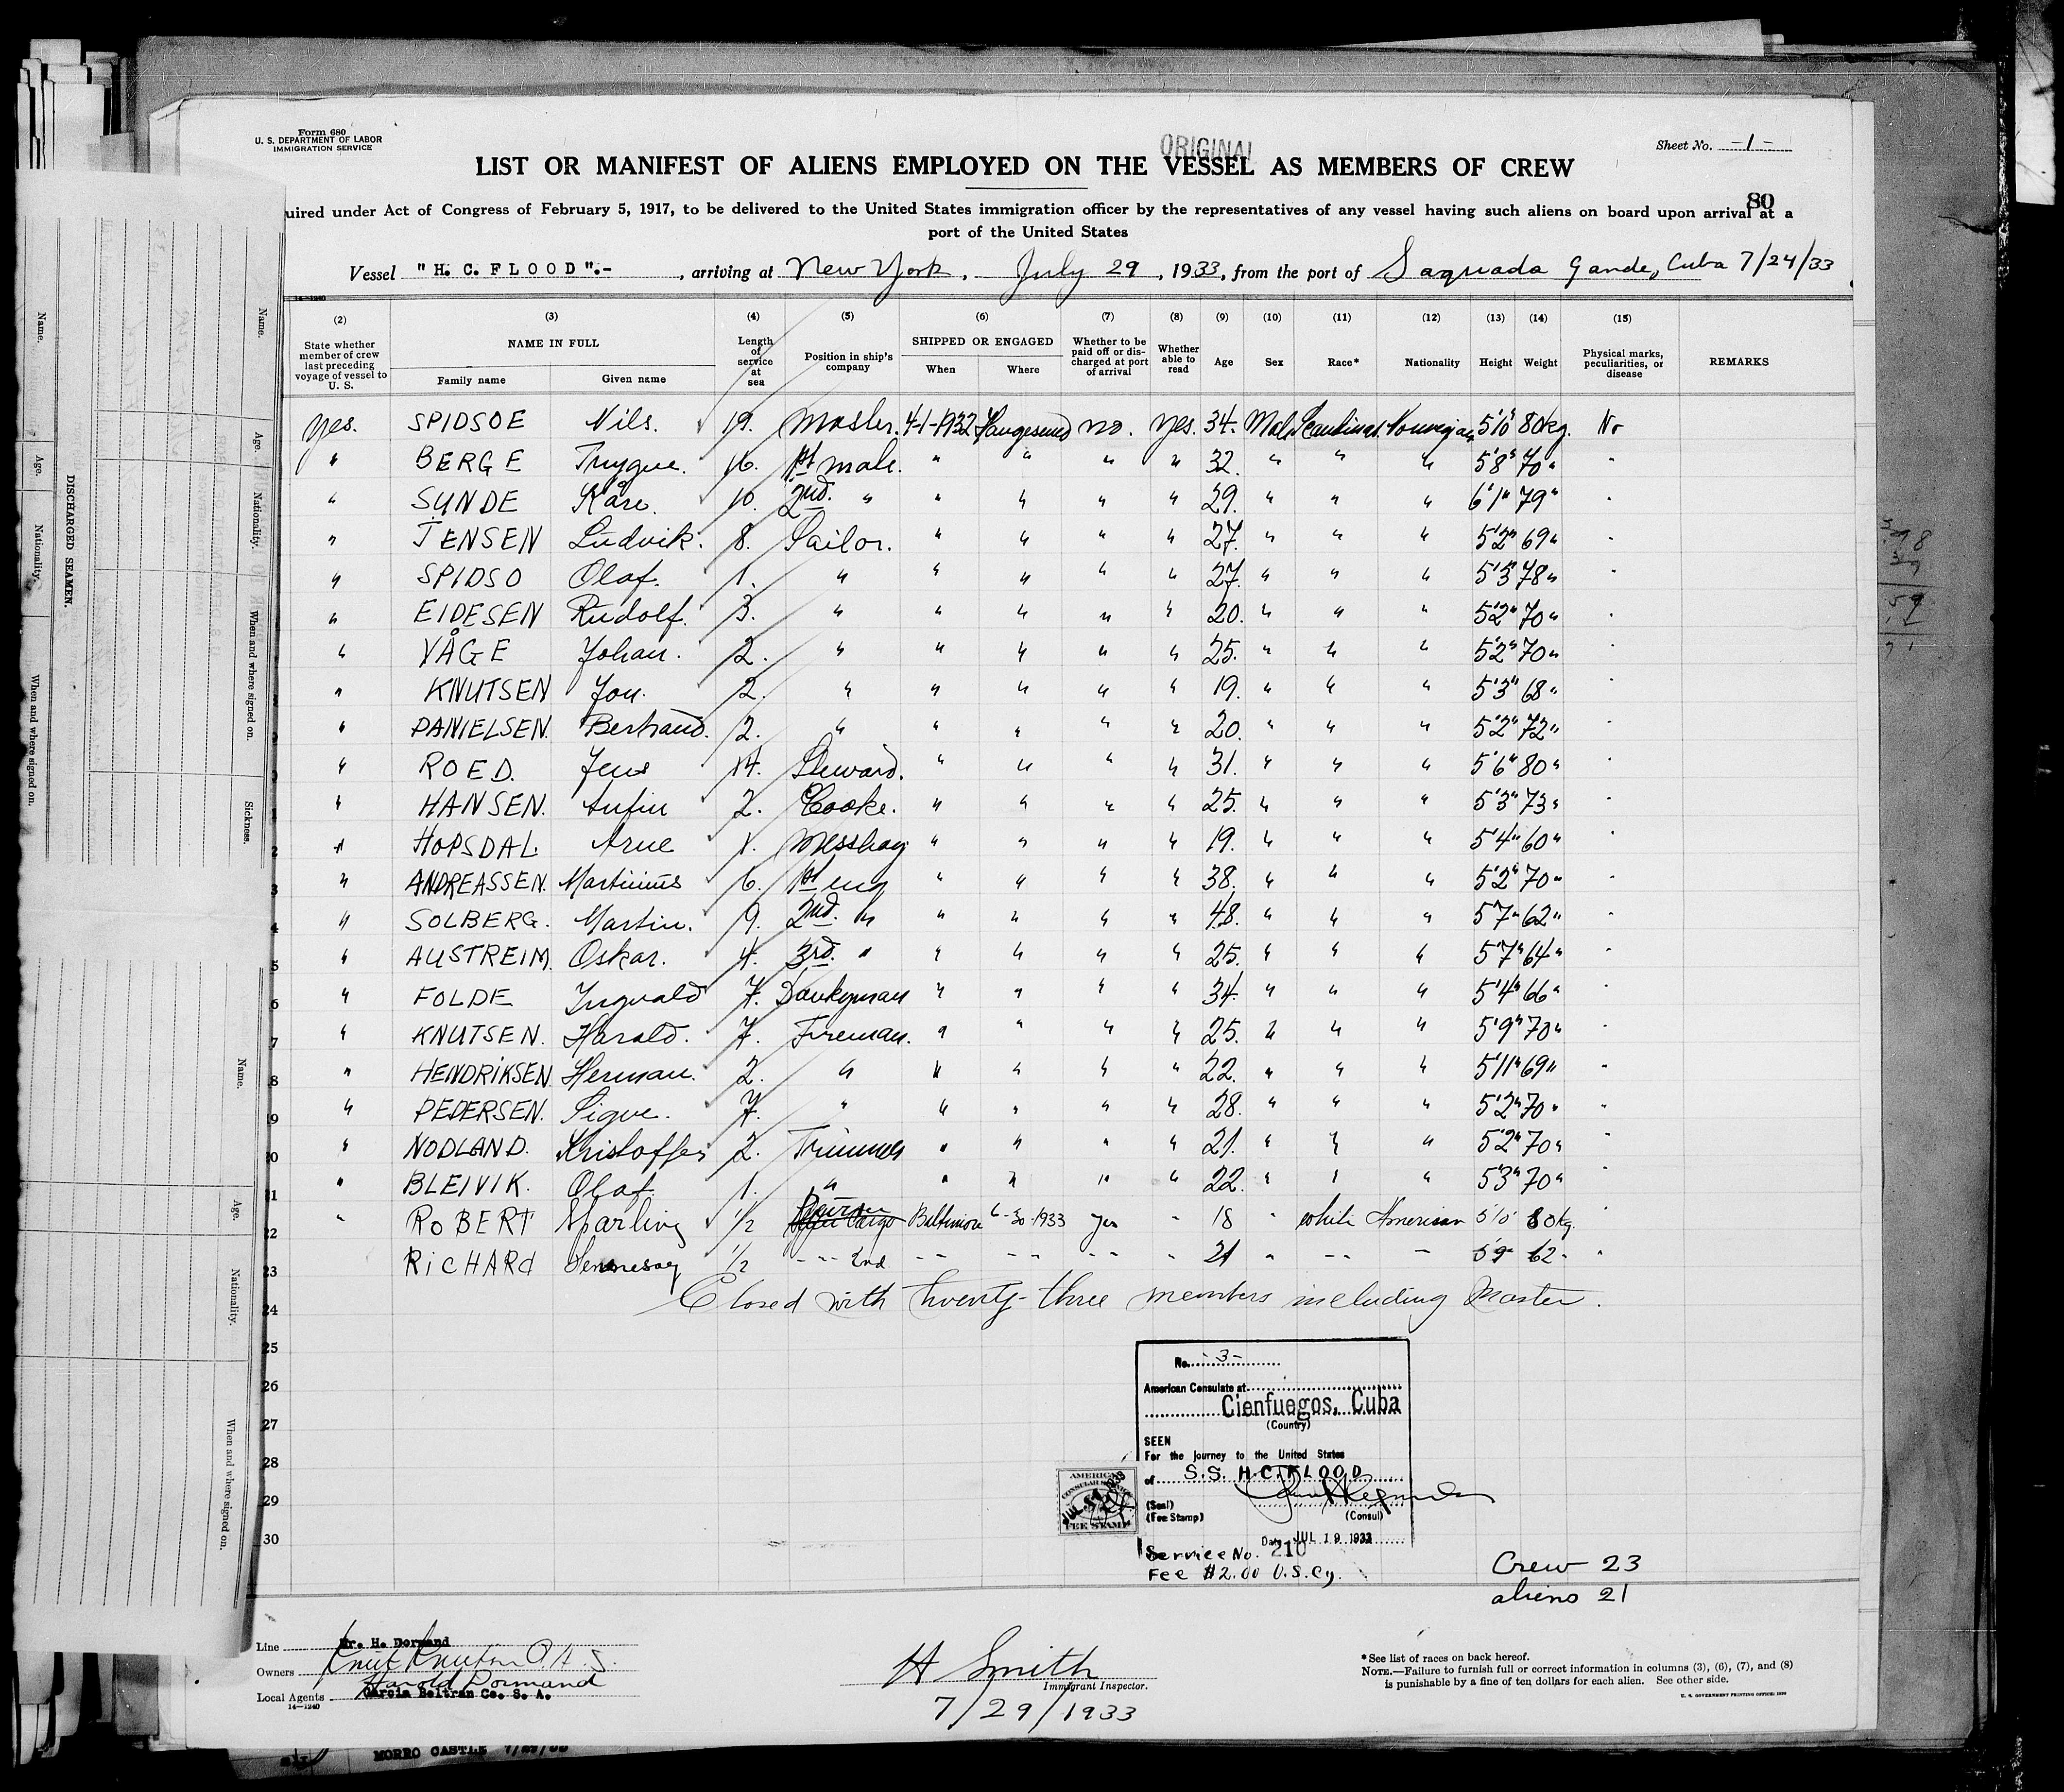 Form 680
U. S. DEPARTMENT OF LABOR
IMMIGRATION SERVICE
ORIGINAL
Sheet No. -1-
LIST OR MANIFEST OF ALIENS EMPLOYED ON THE VESSEL AS MEMBERS OF CREW
80
uired under Act of Congress of February 5, 1917, to be delivered to the United States immigration officer by the representatives of any vessel having such aliens on board upon arrival at a
port of the United States
Vessel "H. C. FLOOD".- , arriving at New York, July 29, 1933, from the port of Saguada Gande, Cuba 7/24/33
14-1240
(2) (3) (4) (5) (6) (7) (8) (9) (10) (11) (12) (13) (14) (15)
State whether member of crew last preceding voyage of vessel to U. S.
NAME IN FULL
Family name Given name
Length of service at sea
Position in ship's company
SHIPPED OR ENGAGED
When Where
Whether to be paid off or discharged at port of arrival
Whether able to read
Age Sex Race* Nationality Height Weight
Physical marks, peculiarities, or disease
REMARKS
Yes. SPIDSOE Nils. 19. Master. 4-1-1932 Haugesund no. yes. 34. Male Scandinav. Norwegian 5'10" 80kg. No
" BERGE Trygve. 16. 1st mate. " " " " 32. " " " 5'8" 70"
" SUNDE Kåre. 10. 2nd. " " " " " 29. " " " 6'1" 79"
" JENSEN Ludvik. 8. Sailor. " " " " 27. " " " 5'2" 69"
" SPIDSO Olaf. 1. " " " " " 27. " " " 5'3" 78"
" EIDESEN Rudolf. 3. " " " " " 20. " " " 5'2" 70"
" VÅGE Johan. 2. " " " " " 25. " " " 5'2" 70"
" KNUTSEN Jon. 2. " " " " " 19. " " " 5'3" 68"
" DANIELSEN. Bertrand. 2. " " " " " 20. " " " 5'2" 72"
" ROED. Jens 14. Steward. " " " " 31. " " " 5'6" 80"
" HANSEN. Anfin 2. Cooke. " " " " 25. " " " 5'3" 73"
" HOPSDAL. Arne 1. Messboy " " " " 19. " " " 5'4" 60"
" ANDREASSEN. Martinius 6. 1st eng " " " " 38. " " " 5'2" 70"
" SOLBERG. Martin. 9. 2nd. " " " " " 48. " " " 5'7" 62"
" AUSTREIM. Oskar. 4. 3rd. " " " " " 25. " " " 5'7" 64"
" FOLDE Ingvald 7. Donkyman " " " " 34. " " " 5'4" 66"
" KNUTSEN. Harald. 7. Fireman. " " " " 25. " " " 5'9" 70"
" HENDRIKSEN Herman. 2. " " " " " 22. " " " 5'11" 69"
" PEDERSEN. Sigve. 7. " " " " " 28. " " " 5'2" 70"
" NODLAND. Kristoffer 2. Trimmer " " " " 21. " " " 5'2" 70"
" BLEIVIK. Olaf. 1. " " " " " 22. " " " 5'3" 70"
" ROBERT Sparling 1/2 Baltimore 6-30-1933 yes " 18 " white American 5'10" 80kg.
RICHARD Hennessey 1/2 - - - 2nd - - - - - - " 21 " - - - 5'9" 62"
Closed with Twenty-three members including Master.
9
20
22
23
24
25
26
27
28
29
30
No. -3-
American Consulate at
Cienfuegos, Cuba
(Country)
SEEN
For the journey to the United States
of S.S. H.C. FLOOD
(Seal)
(Fee Stamp) (Consul)
Date JUL 19 1933
Service No. 210
Fee $2.00 U.S.Cy.
AMERICAN
CONSULAR SERVICE
FEE STAMP
Crew 23
aliens 21
Line Mr. H. Dormand
Owners Knut Knutsen O.A.S.
Harold Dormand
Local Agents Garcia Beltran Co. S. A.
14-1240
H Smith
Immigrant Inspector.
7/29/1933
*See list of races on back hereof.
NOTE.—Failure to furnish full or correct information in columns (3), (6), (7), and (8)
is punishable by a fine of ten dollars for each alien. See other side.
U. S. GOVERNMENT PRINTING OFFICE: 1930
DISCHARGED SEAMEN.
Name. Age. Nationality. When and where signed on.
Name. Age. Nationality. When and where signed on. Sickness.
Name. Age. Nationality. When and where signed on.
MORRO CASTLE